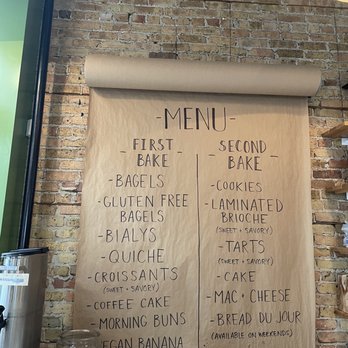 -MENU-
-FIRST
BAKE-
-BAGELS
-GLUTEN FREE
BAGELS
-BIALYS
-QUICHE
-CROISSANTS
-COFFEE CAKE
-MORNING BUNS
VEGAN BANANA
-SECOND
BAKE-
-COOKIES
-LAMINATED
BRIOCHE
(SWEET + SAVORY)
-TARTS
(SWEET + SAVORY)
-CAKE
-MAC + CHEESE
-BREAD DU JOUR
(AVAILABLE ON WEEKENDS)